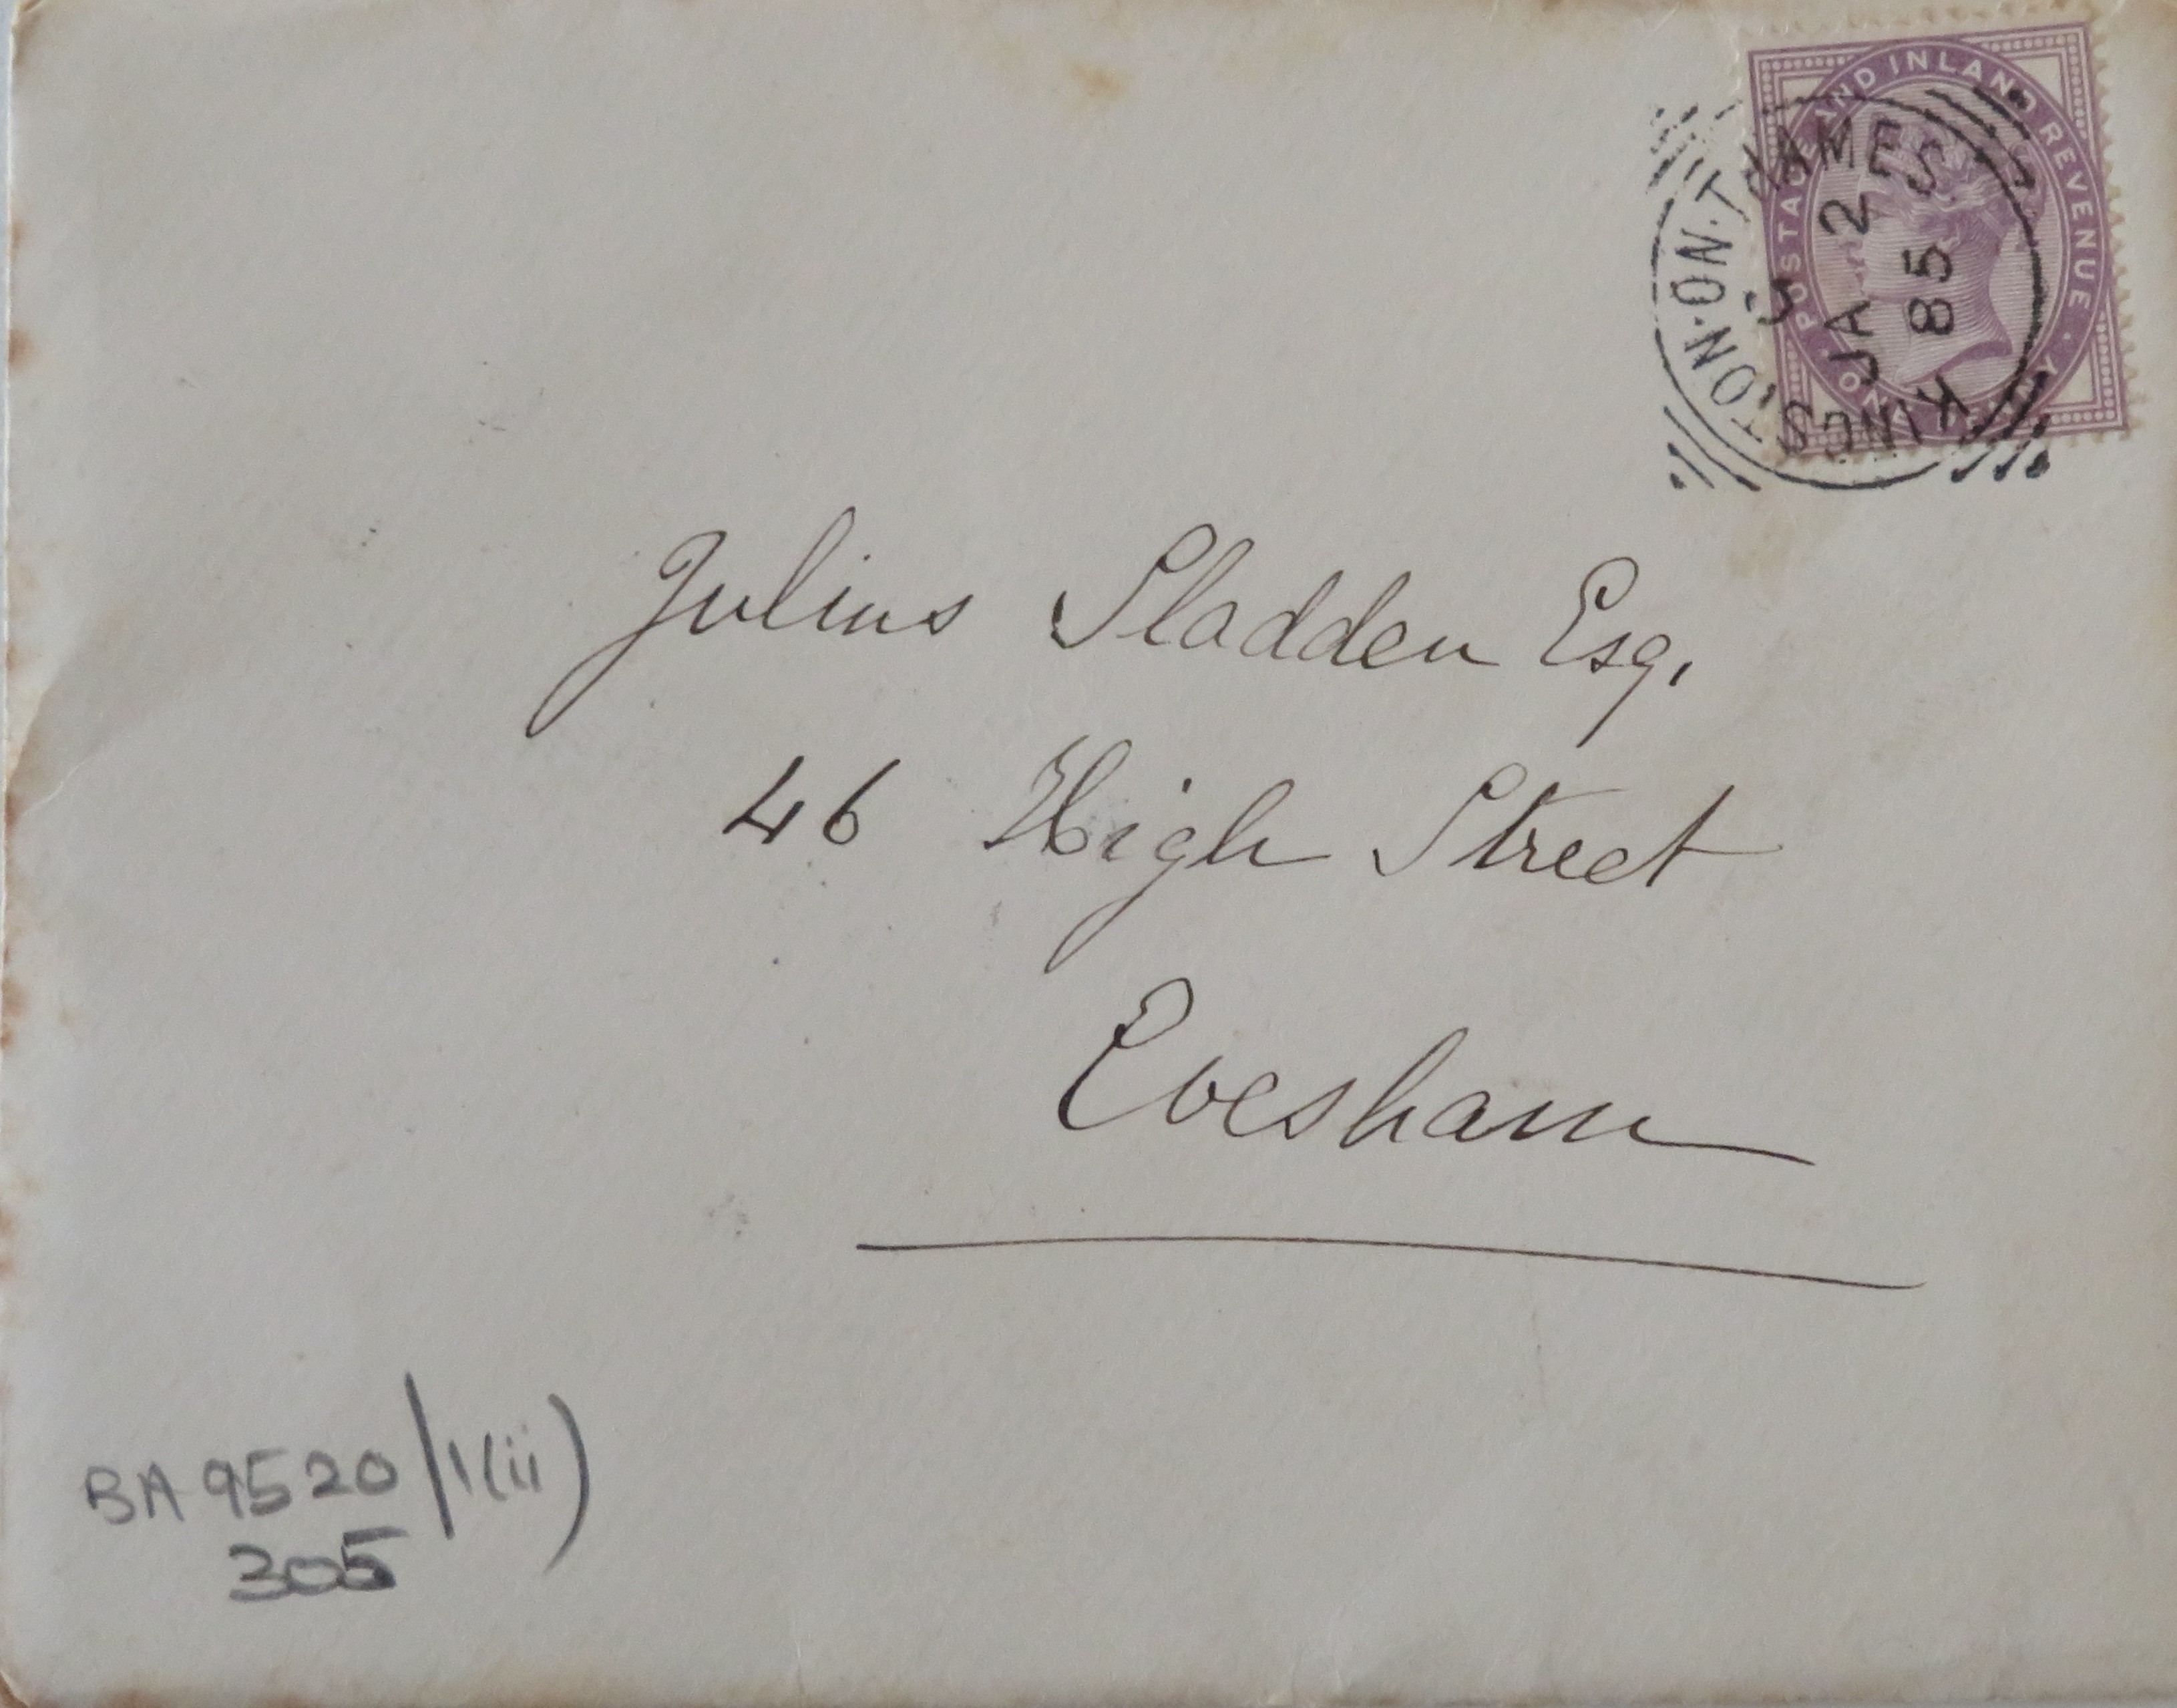 POSTAGE AND INLAND REVENUE
ONE PENNY
KINGSTON·ON·THAMES
JA 2
85
Julius Sladden Esq.
46 High Street
Evesham
BA 9520/1(ii)
305